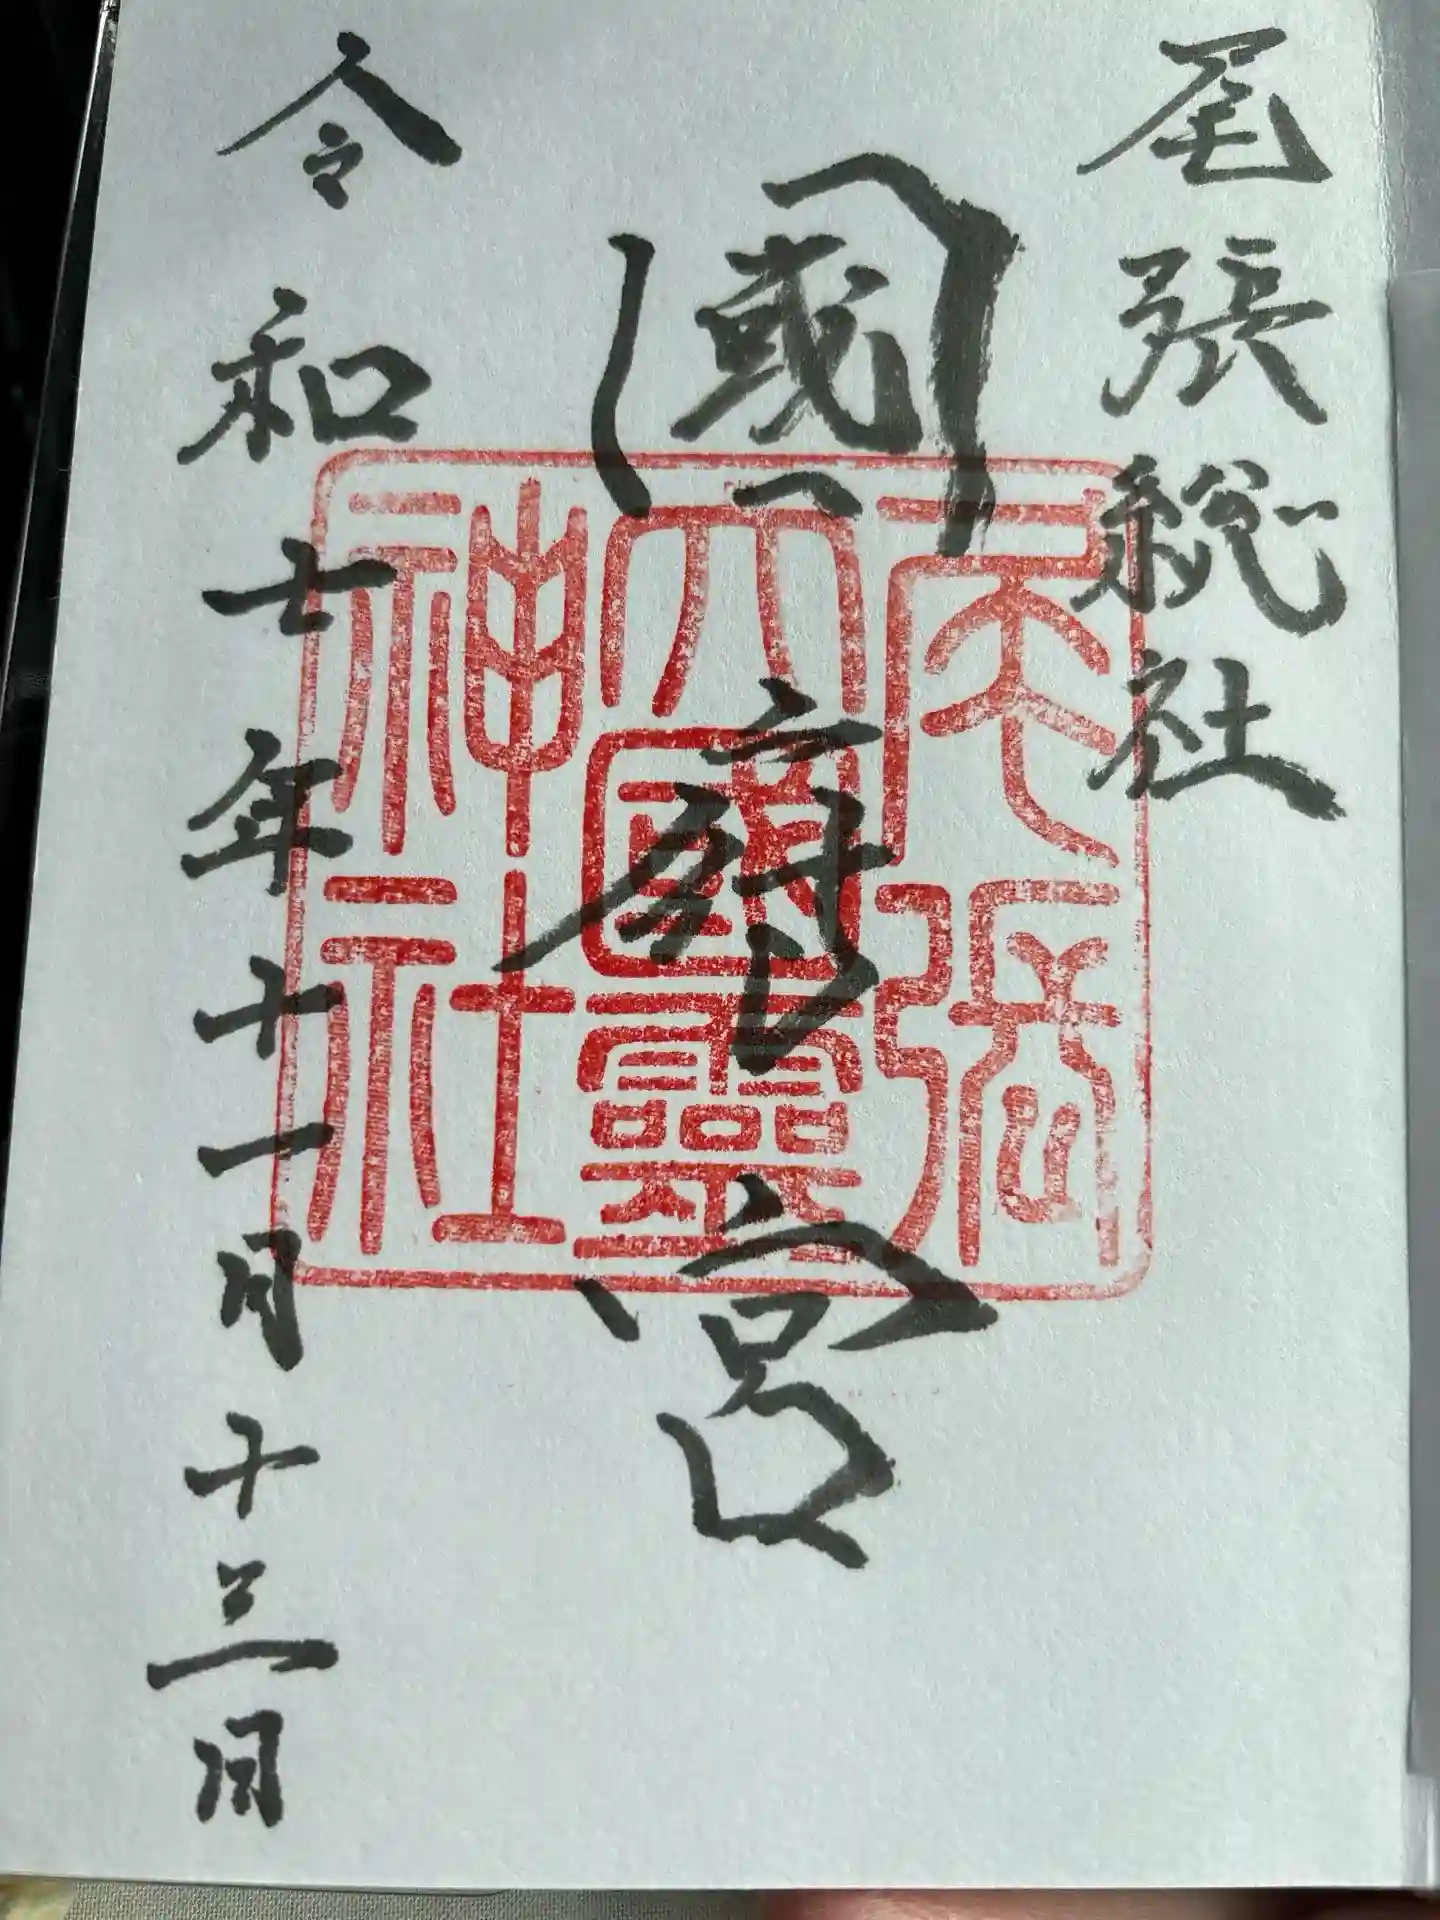 尾張総社
國府宮
尾張
大國霊
神社
令和七年十一月十三日